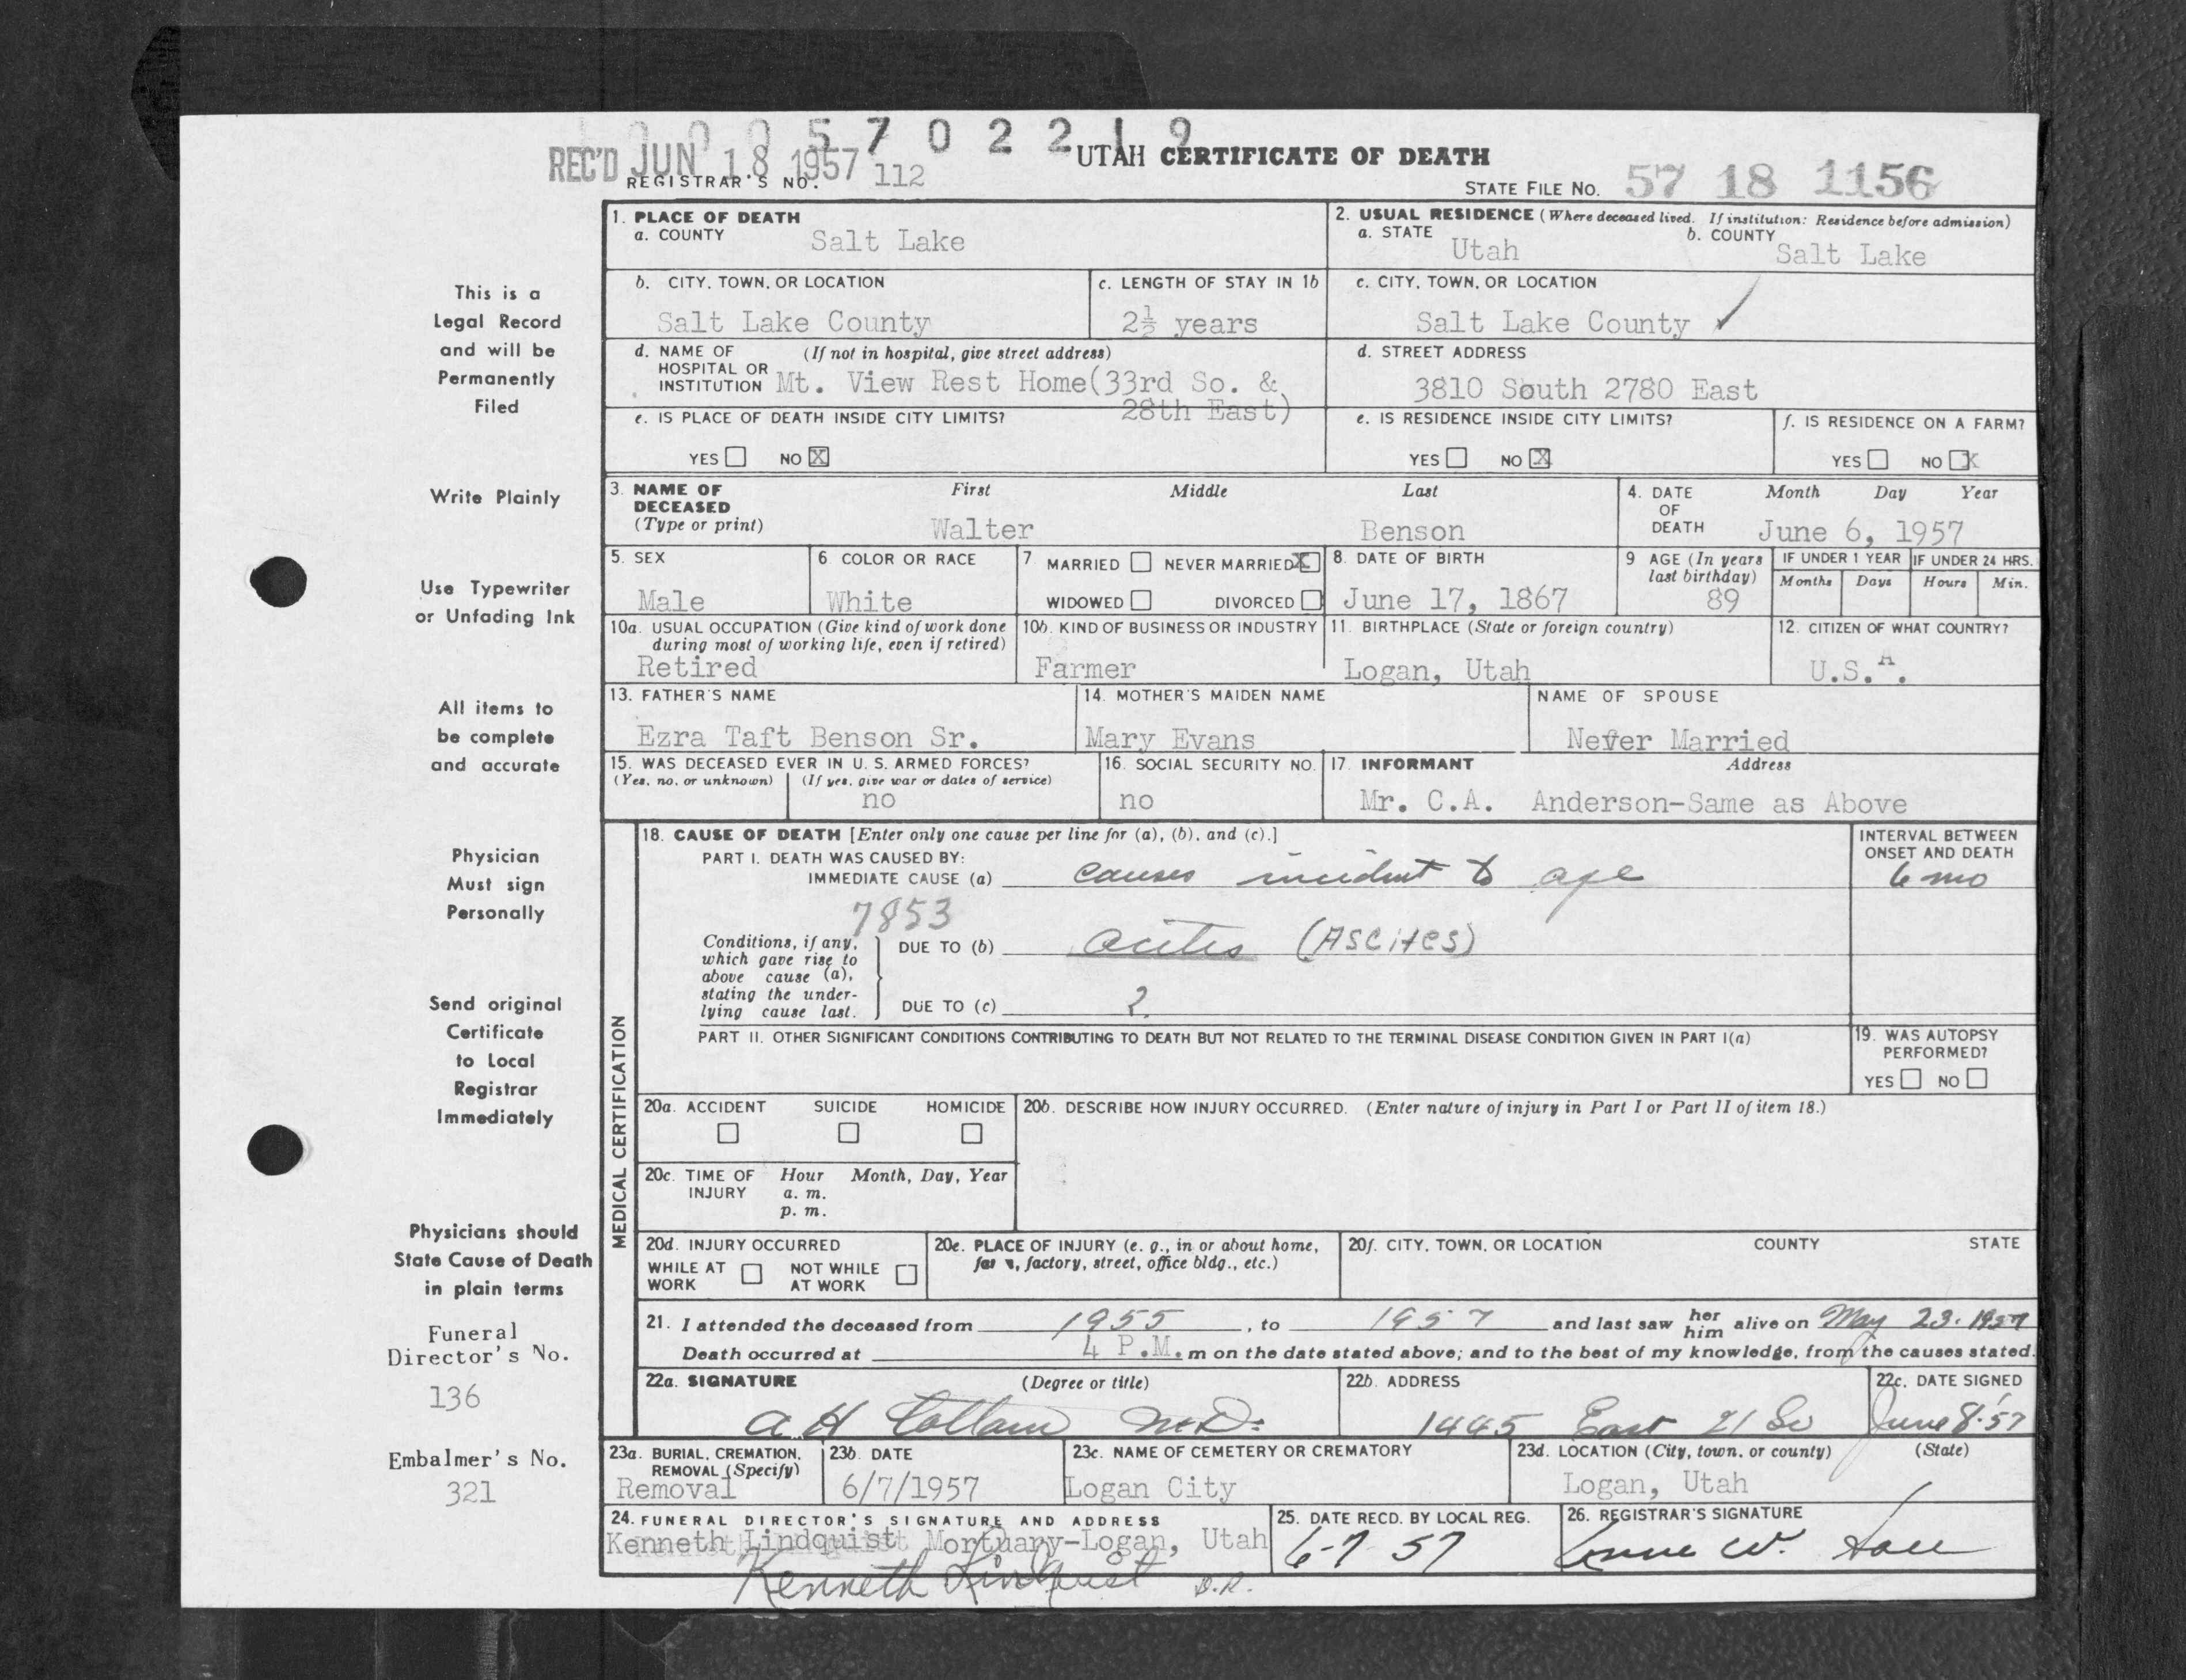 1 0 0 0 5 7 0 2 2 1 9
REC'D JUN 18 1957
REGISTRAR'S NO. 112
UTAH CERTIFICATE OF DEATH
STATE FILE NO. 57 18 1156
This is a
Legal Record
and will be
Permanently
Filed
Write Plainly
Use Typewriter
or Unfading Ink
All items to
be complete
and accurate
Physician
Must sign
Personally
Send original
Certificate
to Local
Registrar
Immediately
Physicians should
State Cause of Death
in plain terms
Funeral
Director's No.
136
Embalmer's No.
321
1. PLACE OF DEATH
a. COUNTY Salt Lake
2. USUAL RESIDENCE (Where deceased lived. If institution: Residence before admission)
a. STATE Utah b. COUNTY Salt Lake
b. CITY, TOWN, OR LOCATION
Salt Lake County
c. LENGTH OF STAY IN 1b
2½ years
c. CITY, TOWN, OR LOCATION
Salt Lake County ✓
d. NAME OF (If not in hospital, give street address)
HOSPITAL OR
INSTITUTION Mt. View Rest Home(33rd So. &
28th East)
d. STREET ADDRESS
3810 South 2780 East
e. IS PLACE OF DEATH INSIDE CITY LIMITS?
YES NO X
e. IS RESIDENCE INSIDE CITY LIMITS?
YES NO X
f. IS RESIDENCE ON A FARM?
YES NO X
3. NAME OF DECEASED (Type or print)
First Middle Last
Walter Benson
4. DATE OF DEATH Month Day Year
June 6, 1957
5. SEX
Male
6 COLOR OR RACE
White
7 MARRIED NEVER MARRIED X
WIDOWED DIVORCED
8. DATE OF BIRTH
June 17, 1867
9 AGE (In years last birthday)
89
IF UNDER 1 YEAR IF UNDER 24 HRS.
Months Days Hours Min.
10a. USUAL OCCUPATION (Give kind of work done
during most of working life, even if retired)
Retired
10b. KIND OF BUSINESS OR INDUSTRY
Farmer
11. BIRTHPLACE (State or foreign country)
Logan, Utah
12. CITIZEN OF WHAT COUNTRY?
U.S.A.
13. FATHER'S NAME
Ezra Taft Benson Sr.
14. MOTHER'S MAIDEN NAME
Mary Evans
NAME OF SPOUSE
Never Married
15. WAS DECEASED EVER IN U. S. ARMED FORCES?
(Yes, no, or unknown) (If yes, give war or dates of service)
no
16. SOCIAL SECURITY NO.
no
17. INFORMANT Address
Mr. C.A. Anderson-Same as Above
MEDICAL CERTIFICATION
18. CAUSE OF DEATH [Enter only one cause per line for (a), (b), and (c).]
PART I. DEATH WAS CAUSED BY:
IMMEDIATE CAUSE (a) causes incident to age
INTERVAL BETWEEN
ONSET AND DEATH
6 mo
7853
Conditions, if any,
which gave rise to
above cause (a),
stating the under-
lying cause last.
DUE TO (b) acites (ASCites)
DUE TO (c) ?
PART II. OTHER SIGNIFICANT CONDITIONS CONTRIBUTING TO DEATH BUT NOT RELATED TO THE TERMINAL DISEASE CONDITION GIVEN IN PART I(a)
19. WAS AUTOPSY
PERFORMED?
YES NO
20a. ACCIDENT SUICIDE HOMICIDE
20b. DESCRIBE HOW INJURY OCCURRED. (Enter nature of injury in Part I or Part II of item 18.)
20c. TIME OF INJURY Hour Month, Day, Year
a. m.
p. m.
20d. INJURY OCCURRED
WHILE AT WORK NOT WHILE AT WORK
20e. PLACE OF INJURY (e. g., in or about home,
farm, factory, street, office bldg., etc.)
20f. CITY, TOWN, OR LOCATION COUNTY STATE
21. I attended the deceased from 1955, to 1957 and last saw her him alive on May 23. 1957
Death occurred at 4 P.M. m on the date stated above; and to the best of my knowledge, from the causes stated.
22a. SIGNATURE (Degree or title)
A H M.D.
22b. ADDRESS
1445 East 21 So
22c. DATE SIGNED
June 8-57
23a. BURIAL, CREMATION,
REMOVAL (Specify)
Removal
23b. DATE
6/7/1957
23c. NAME OF CEMETERY OR CREMATORY
Logan City
23d. LOCATION (City, town, or county) (State)
Logan, Utah
24. FUNERAL DIRECTOR'S SIGNATURE AND ADDRESS
Kenneth Lindquist Mortuary-Logan, Utah
Kenneth Lindquist D.R.
25. DATE RECD. BY LOCAL REG.
6-7 57
26. REGISTRAR'S SIGNATURE
W.